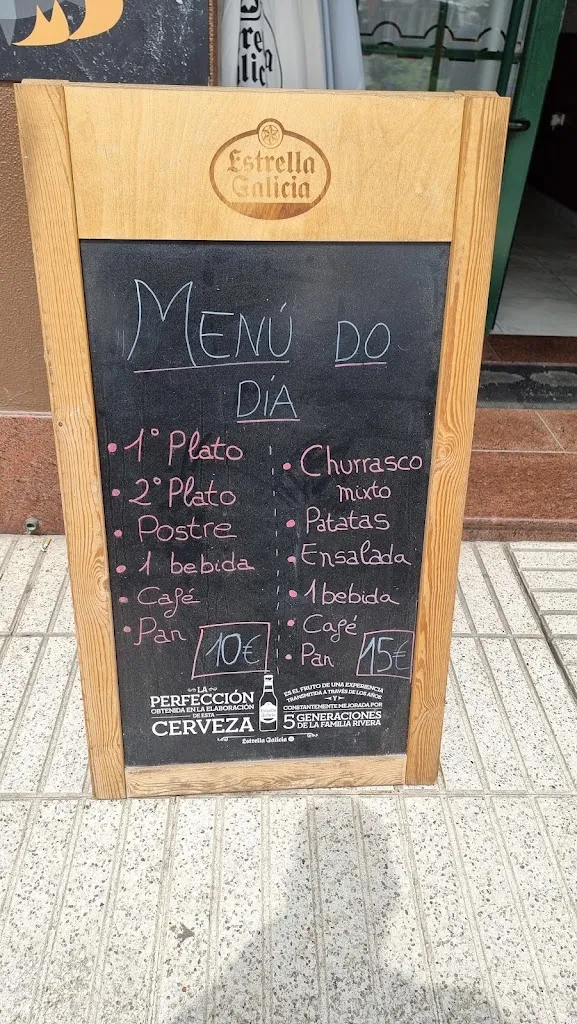 Estrella
Galicia
MENÚ DO
DÍA
• 1º Plato
• 2º Plato
• Postre
• 1 bebida
• Café
• Pan 10€
• Churrasco
mixto
• Patatas
• Ensalada
• 1 bebida
• Café
• Pan 15€
LA
PERFECCIÓN
OBTENIDA EN LA ELABORACIÓN
DE ESTA
CERVEZA
ES EL FRUTO DE UNA EXPERIENCIA
TRANSMITIDA A TRAVÉS DE LOS AÑOS
Y
CONSTANTEMENTE MEJORADA POR
5 GENERACIONES
DE LA FAMILIA RIVERA
Estrella Galicia